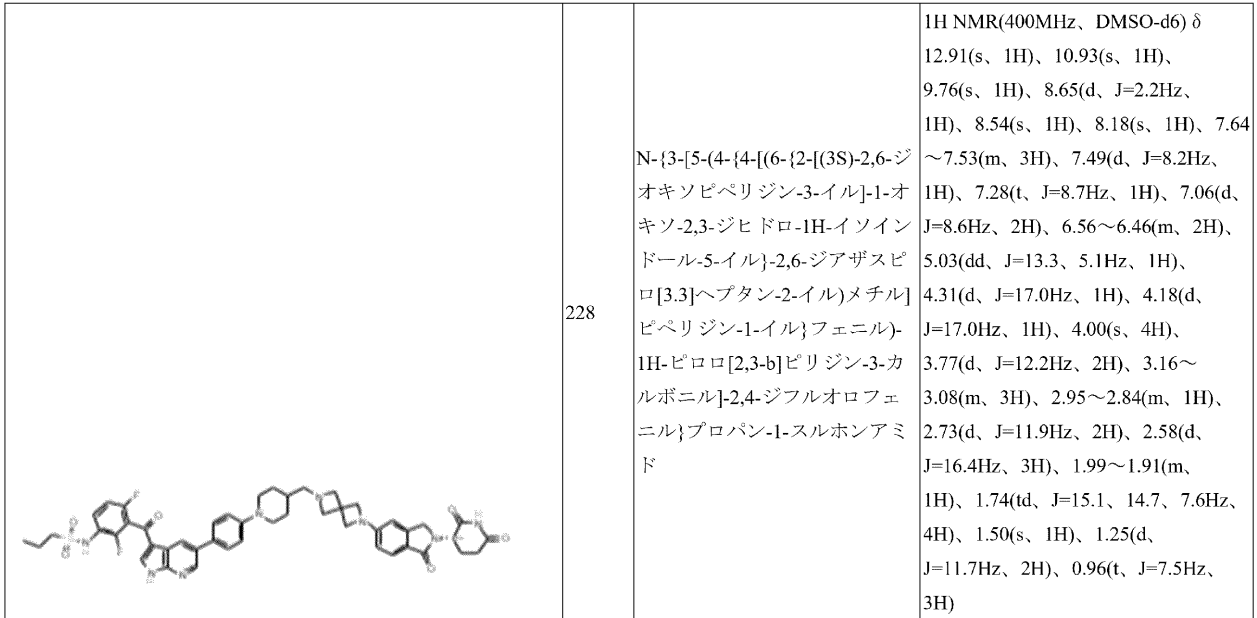 228
N-{3-[5-(4-{4-[(6-{2-[(3S)-2,6-ジ
オキソピペリジン-3-イル]-1-オ
キソ-2,3-ジヒドロ-1H-イソイン
ドール-5-イル}-2,6-ジアザスピ
ロ[3.3]ヘプタン-2-イル)メチル]
ピペリジン-1-イル}フェニル)-
1H-ピロロ[2,3-b]ピリジン-3-カ
ルボニル]-2,4-ジフルオロフェ
ニル}プロパン-1-スルホンアミ
ド
1H NMR(400MHz、DMSO-d6) δ
12.91(s、1H)、10.93(s、1H)、
9.76(s、1H)、8.65(d、J=2.2Hz、
1H)、8.54(s、1H)、8.18(s、1H)、7.64
～7.53(m、3H)、7.49(d、J=8.2Hz、
1H)、7.28(t、J=8.7Hz、1H)、7.06(d、
J=8.6Hz、2H)、6.56～6.46(m、2H)、
5.03(dd、J=13.3、5.1Hz、1H)、
4.31(d、J=17.0Hz、1H)、4.18(d、
J=17.0Hz、1H)、4.00(s、4H)、
3.77(d、J=12.2Hz、2H)、3.16～
3.08(m、3H)、2.95～2.84(m、1H)、
2.73(d、J=11.9Hz、2H)、2.58(d、
J=16.4Hz、3H)、1.99～1.91(m、
1H)、1.74(td、J=15.1、14.7、7.6Hz、
4H)、1.50(s、1H)、1.25(d、
J=11.7Hz、2H)、0.96(t、J=7.5Hz、
3H)